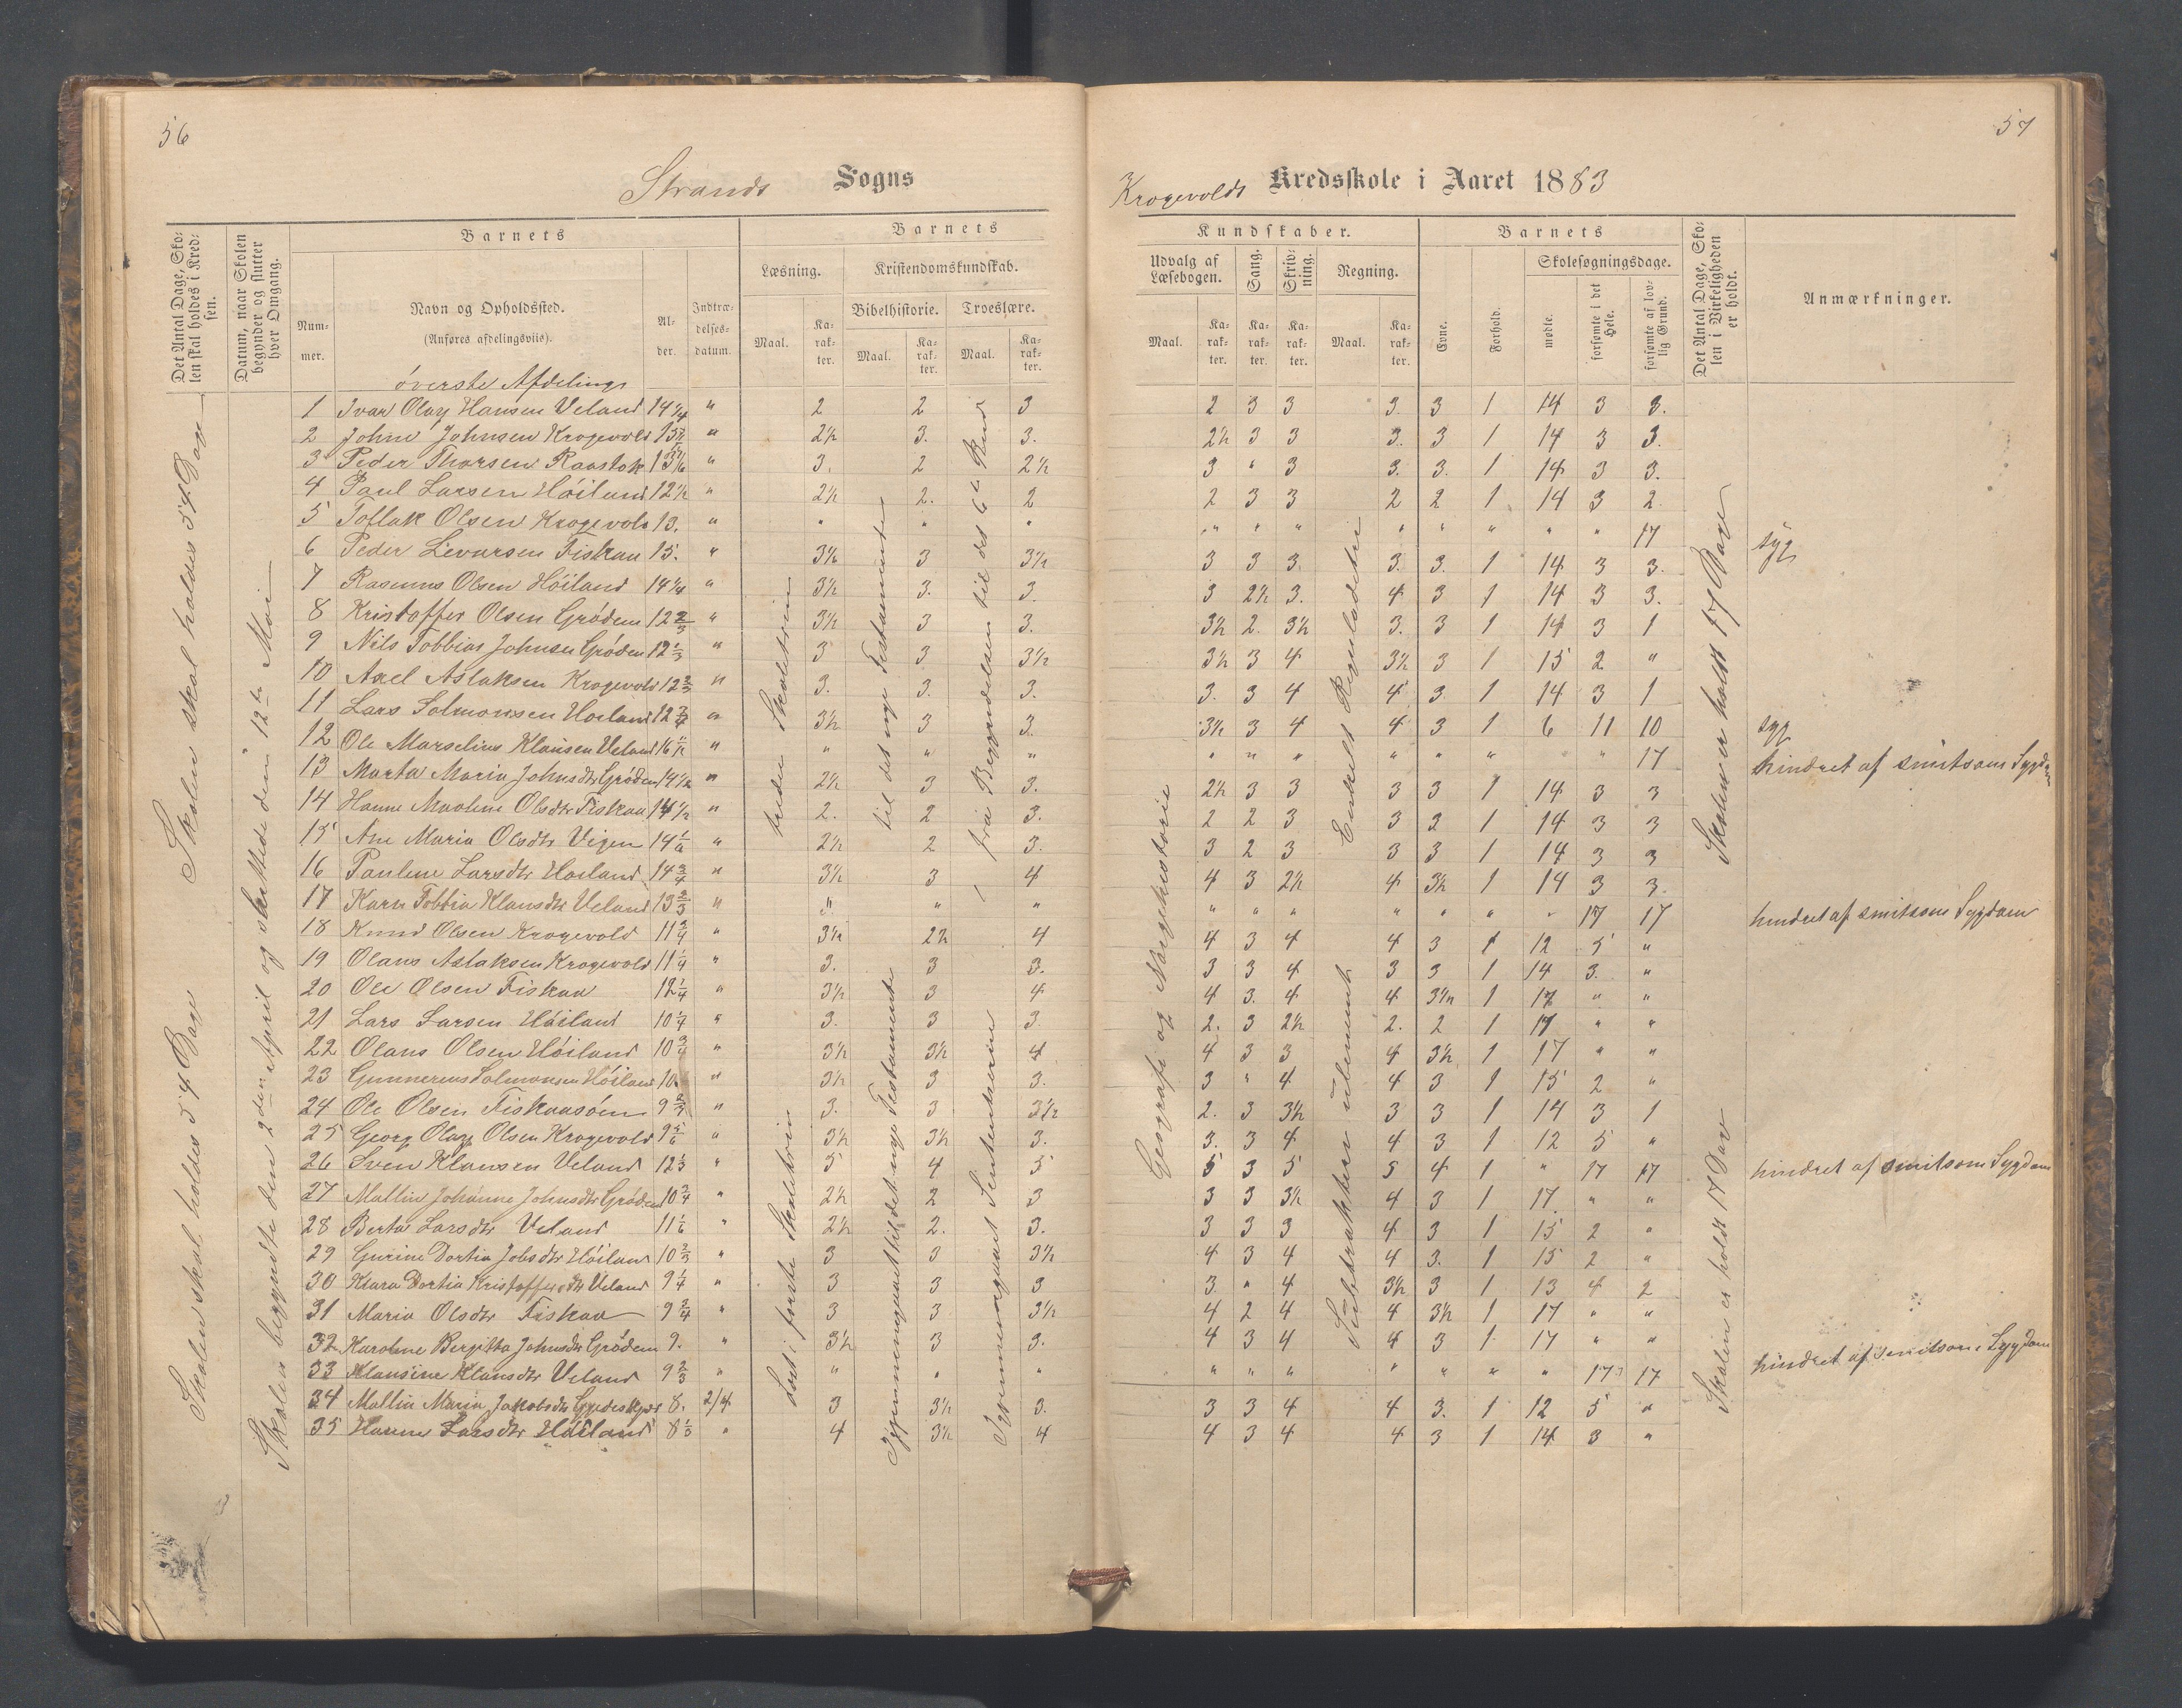 56
Strands Sogns
Det Antal Dage, Sko-
len skal holdes i Kred-
sen.
Datum, naar Skolen
begynder og slutter
hver Omgang.
Barnets
Num-
mer.
Navn og Opholdssted.
(Anføres afdelingsviis).
Al-
der.
Indtræ-
delses-
datum.
Barnets
Læsning.
Kristendomskundskab.
Bibelhistorie.
Troeslære.
Maal.
Ka-
rak-
ter.
Maal.
Ka-
rak-
ter.
Maal.
Ka-
rak-
ter.
øverste Afdeling
1 Ivar Olay Hansen Veland 14 1/4 " 2 2 3
2 Johne Johnsen Krogevold " 2½ 3. 3.
3 Peder Thorsen Raastok " 3. 2 2½
4 Paul Larsen Höiland 12½ " 2½ 2. 2
5 Tollak Olsen Krogevold 13. " " " "
6 Peder Sivarsen Fiskaa 15. " 3½ 3 3½
7 Rasmus Olsen Höiland 14¼ " 3½ 3. 3.
8 Kristoffer Olsen Grødem 12 2/3 " 3½ 3 3.
9 Nils Tobbias Johnsen Grødem 12 1/3 " 3 3 3½
10 Axel Aslaksen Krogevold 12 2/3 " 3. 3. 3.
11 Lars Solmonsen Höiland 12 3/4 " 3½ 3 3.
12 Ole Marselius Klausen Veland " " " "
13 Marta Maria Johnsdtr Grödem 14½ " 2½ 3 3.
14 Hanne Maalene Olsdtr Fiskaa 14½ " 2. 2 3.
15 Ane Maria Olsdtr Vigen 14 1/6 " 2½ 2 3.
16 Pauline Larsdtr Höiland 14 3/4 " 3½ 3 4
17 Karn Tobbia Klausdtr Veland 13 2/3 " " " "
18 Knud Olsen Krogevold 11 3/4 " 3½ 2½ 4
19 Olaus Aslaksen Krogevold 11 1/4 " 3. 3 3.
20 Ole Olsen Fiskaa 12 1/4 " 3½ 3 4
21 Lars Larsen Höiland 10 1/4 " 3. 3 3.
22 Olaus Olsen Höiland 10 3/4 " 3½ 3½ 4
23 Gunnerius Solmonsen Höiland 10 " 3½ 3 3.
24 Ole Olsen Fiskaasöen 9 2/3 " 3. 3 3½
25 Georg Olay Olsen Krogevold 9 5/6 " 3½ 3½ 3.
26 Sven Klausen Veland 12 1/3 " 5 4 5
27 Mallin Johanne Johnsdtr Grödem 10 3/4 " 2½ 2 3
28 Berta Larsdtr Veland 11 1/6 " 2½ 2. 3.
29 Gurine Dortia Jobsdtr Höiland 10 2/3 " 3 3 3½
30 Klara Dortia Kristoffersdtr Veland 9 1/4 " 3 3 3
31 Maria Olsdtr Fiskaa 9 3/4 " 3 3 3½
32 Karoline Bergitta Johnsdtr Grödem 9. " 3½ 3 3.
33 Klausine Klausdtr Veland 9 2/3 " " " "
34 Mallin Maria Jakobsdtr 8. 2/4 3 3½ 3.
35 Hanne Larsdtr Höiland 8 1/3 " 4 3½ 4
Skolen skal holdes 54 Dage
Skolen skal holdes 54 Dage
Skolen begyndte den 2den April og sluttede den 12te Mai
Læst i første Skoletrin
treden Skoletrin
Igjennemgaaet til det nye Testamente
til det nye Testamente
Igjennemgaaet Sententserien
fra Begyndelsen til det 6te Bud
57
Krogevolds Kredsskole i Aaret 1883
Kundskaber.
Udvalg af
Læsebogen.
Sang.
Skriv-
ning.
Regning.
Maal.
Ka-
rak-
ter.
Ka-
rak-
ter.
Ka-
rak-
ter.
Maal.
Ka-
rak-
ter.
Barnets
Evne.
Forhold.
Skolesøgningsdage.
mødte.
forsømte i det
Hele.
forsømte af lov-
lig Grund.
Det Antal Dage, Sko-
len i Virkeligheden
er holdt.
Anmærkninger.
2 3 3 3. 3 1 14 3 3.
2½ 3 3 3. 3 1 14 3 3.
3 " 3 3. 3. 1 14 3 3.
2 3 3 2 2 1 14 3 2.
" " " " " " " " 17 syg
3 3 3. 3. 3. 1 14 3 3.
3 2½ 3. 4 3 1 14 3 3.
3½ 2. 3½ 3. 3 1 14 3 1
3½ 3 4 3½ 3 1 15 2 "
3. 3 4 4 3. 1 14 3 1
3½ 3 4 4 3 1 6 11 10 syg
" " " " " " " 17 hindret af smitsom Sygdom
2½ 3 3 3 3 1 14 3 3
2 2 3 3 2 1 14 3 3
3 2 3 3 3 1 14 3 3
4 3 2½ 4 3½ 1 14 3 3.
" " " " " " " 17 17 hindret af smitsom Sygdom
4 3 4 4 3 1 12 5 "
3 3 4 3 3 1 14 3. "
4 3. 4 4 3½ 1 17 " "
2. 3 2½ 2. 2 1 17 " "
4 3 3 4 3½ 1 17 " "
3 " 4 4 3 1 15 2 "
2. 3 3½ 3 3 1 14 3 1
3. 3 4 4 3 1 12 5 "
5 3 5 5 4 1 " 17 17 hindret af smitsom Sygdom
3 3 3½ 4 3 1 17. " "
3 3 3 4 3 1 15 2 "
4 3 4 4 3. 1 15 2 "
3. " 4 3½ 3 1 13 4 2
4 2 4 4 3½ 1 17 " "
4 3 4 4 3 1 17 " "
" " " " " " " 17 17 hindret af smitsom Sygdom
3 3 4 4 3. 1 12 5 "
4 3 4 4 3 1 14 3 "
Geografi og Norgehistorie
Subtraktion
Enkelt Reguladetri
Skolen er holdt 17 Dage
Skolen er holdt 17 Dage